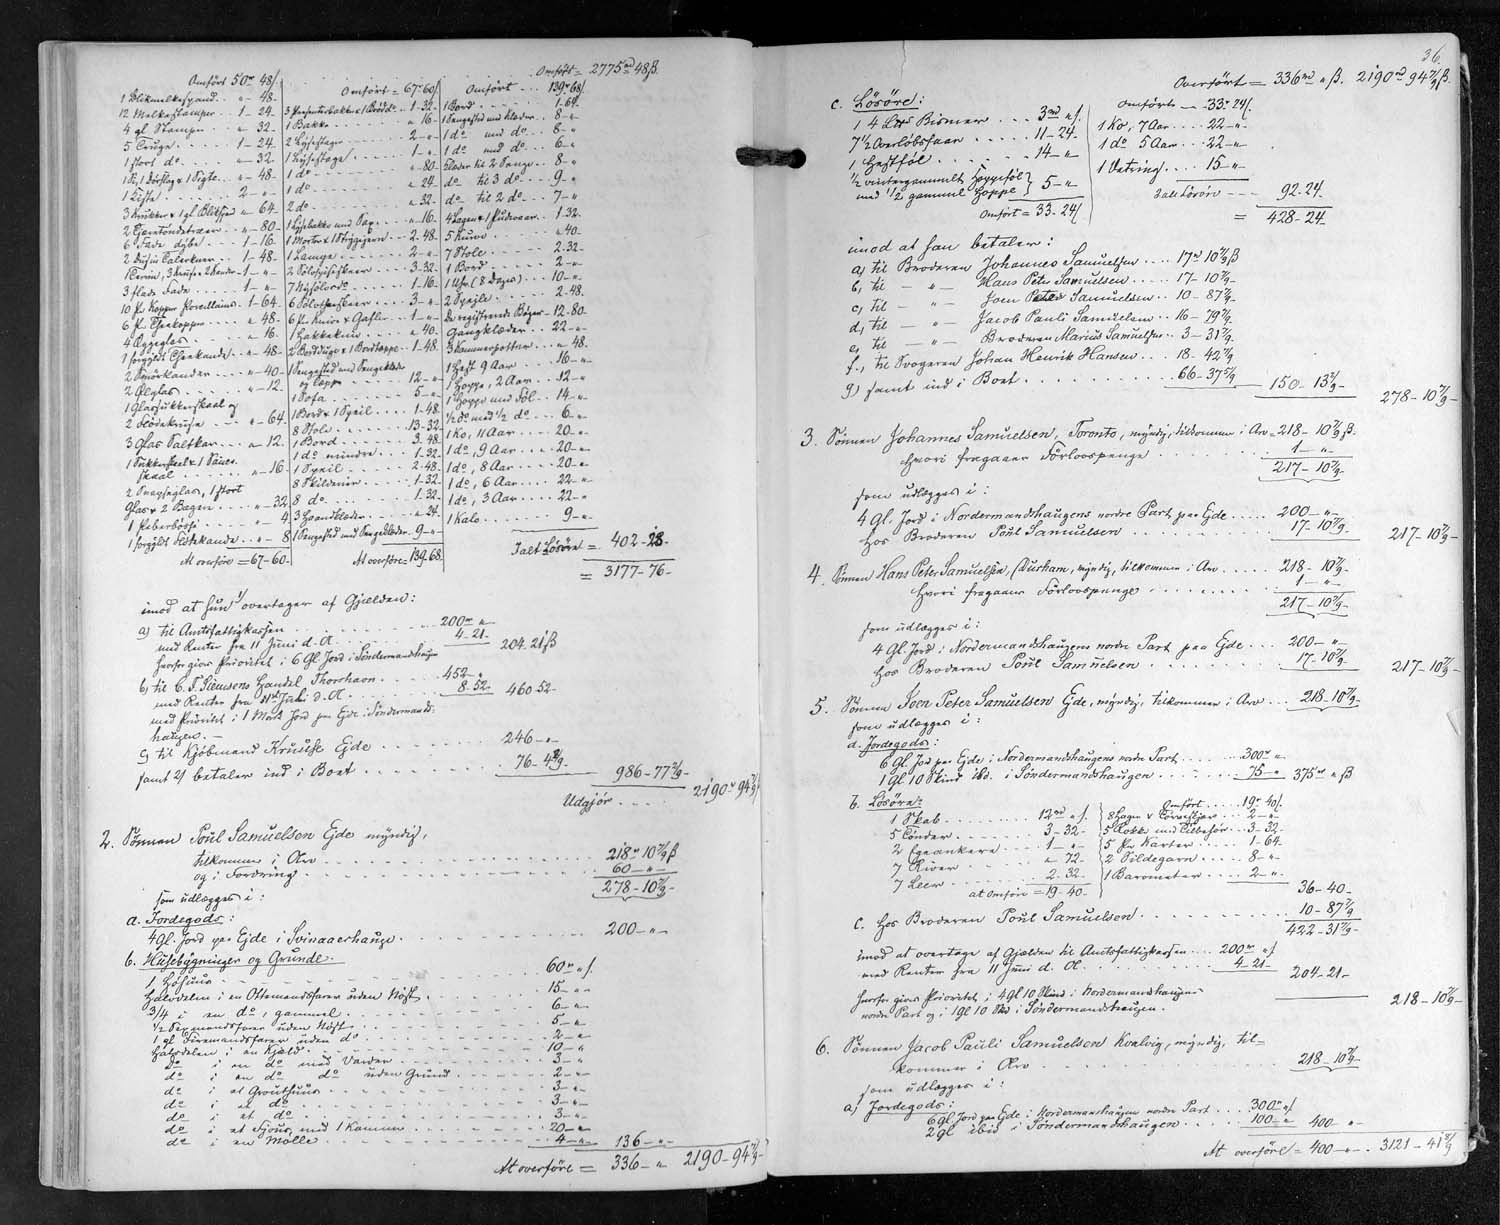 Omført = 2775 rd 48 ß.
Omført 50 rd 48 ß
1 Blikmelkespand .. „ 48.
12 Melkestamper 1-24.
4 gl Stamper .. „ 32.
5 Truge .... 1-24.
1 stort do. ... „ 32.
1 Si, 1 Dørslag & 1 Sigte „ 48.
1 Kiste ... 2-„
3 Krukker & 1 gl Blikspa „ 64.
6 Fade dybe .. 1-16.
2 Dusin Talerkner .. 1-48.
3 flade Fade ... 1-„
10 Pr Kopper Porcellains. 1-64.
6 Pr. Theekopper ... „ 48.
1 forgyldt Theekande .. „ 48.
2 Smørkander ... „ 40.
2 Ølglas ... „ 12.
1 Glassukkerskaal og
2 Flødekruse .. „ 64.
3 Glas Saltkar ... „ 12.
1 Sukkerskaal & 1 Sauce-
skaal ... „ 16.
2 Snapseglas, 1 stort
Glas & 2 Bægere ... „ 32
1 Peberbøsse ... „ 4
1 forgyldt Flødekande .. „ 8
At omføre = 67-60.
Omført = 67-60
3 Presenterbakker & 1 Brødd. 1-32.
1 Bakke ... „ 16
2 Lysestager ... 2-„
1 Lysestage ... 1-„
1 do ... „ 80
1 do ... „ 24
2 do ... „ 32
1 Lysebakke med Sax ... „ 16
1 Morter & 1 Strygejern .. 2-48
1 Lampe ... 2-„
2 Sølvspiseskeer ... 3-32
7 Nysølvdo ... 1-16
6 Sølvtheskeer ... 3-„
6 Pr. Knive & Gafler .. 1-„
1 Hakkekniv ... „ 40
2 Borddug & 1 Bordtæppe .. 1-48
1 Sengested med Sengeklæder
12-„
1 Sofa ... 5-„
1 Bord & 1 Speil ... 1-48
8 Stole ... 13-32
1 Bord ... 3-48
1 do mindre ... 1-32
1 Speil ... 2-48
8 Skilderier ... 1-32
8 do ... 1-32
3 Haandklæder ... „ 24
1 Sengested med Sengeklæder 9-„
At omføre = 139.68.
Omført 139 rd 68 ß
1 Bord ... 1-64.
1 Sengested med Klæder .. 8-„
1 do med do ... 8-„
1 do med do ... 6-„
Klæder til 2 Senge .. 8-„
do til 3 do ... 9-„
do til 2 do ... 7-„
4 Lagen & 1 Pudevaar .. 1.32
5 Kurve ... „ 40
7 Stole ... 2.32
1 Bord ... 2-„
1 Uhr (8 Dages) ... 10-„
2 Speile ... 2-48.
De registrerede Bøger .. 12-80
Gangklæder .... 22-„
3 Kammerpotter ... „ 48.
1 Hest 9 Aar ... 16-„
1 Hoppe, 2 Aar ... 12-„
1 Hoppe med Føl .. 14-„
1/2 do med 1/2 do ... 6-„
1 Ko, 11 Aar ... 20-„
1 do, 9 Aar ... 20-„
1 do, 8 Aar ... 20-„
1 do, 6 Aar ... 22-„
1 do, 3 Aar ... 22-„
1 Kalv ... 9-„
Ialt Løsøre = 402-28.
= 3177-76-
imod at hun overtager af Gjælden:
a) til Amtsfattigkassen ... 200 rd „
med Renter fra 11 Juni d. A. ... 4-21. 204. 21 ß
hvorfor gives Prioritet i 6 Gl Jord i Søndermandshaugen
b, til C. F. Siemsens Handel Thorshavn ... 452 „
med Renter fra 11 Juli d. A. ... 8.52. 460-52-
med Prioritet i 1 Mark Jord paa Ejde i Søndermands-
haugen. -
c, til Kjøbmand Kruuse Ejde ... 246-„-
samt 2) betaler ind i Boet ... 76-4 8/9- 986-77 2/9-
Udgjør .... 2190 rd 94 7/9 ß
2. Sønnen Poül Samuelsen Ejde myndig,
tilkommer i Arv ... 218 rd 10 7/9 ß
og i Fordring ... 60-„-
278-10 7/9-
som udlægges i:
a. Jordegods:
4 Gl. Jord paa Ejde i Svinaaerhauge ... 200-„-
b. Husebygninger og Grunde.
1 Høhuus ... 60 rd „ ß.
Halvdelen i en Ottemandsfarer uden Nøst ... 15-„
3/4 i en do, gammel ... 6-„
1/2 Sexmandsfarer uden Nøst ... 5-„
1 gl Firemandsfarer uden do ... 2-„
Halvdelen i en Kjeld ... 10-„
do i en do med Varder ... 3-„
do i en do do uden Grund ... 2-„
do i et Grouthuus ... 3-„
do i et do ... 3-„
do i et do ... 3-„
do i et Hjour, med 1 Kammer ... 20-„
do i en Mølle ... 4-„ 136-„
At overføre = 336-„ 2190-94 7/9-
36.
Overført = 336 rd „ ß. 2190 rd 94 7/9 ß.
c. Løsøre:
1 4 Lttrs Bismer ... 3 rd „ ß.
7 1/2 Overløbsfaar ... 11-24.
1 Hestføl ... 14-„
1/2 vintergammelt Hoppeføl
med 1/2 gammel Hoppe } 5-„
Omført = 33-24 ß
Omført ... 33 rd 24 ß
1 Ko, 7 Aar .... 22-„
1 do 5 Aar ... 22-„
1 Vetring ... 15-„
Ialt Løsøre --- 92-24-
= 428-24-
imod at han betaler:
a) til Broderen Johannes Samuelsen ... 17 rd 10 7/9 ß
b, til - „ - Hans Peter Samuelsen .... 17-10 7/9-
c, til - „ - Joen Peter Samuelsen .. 10-87 7/9-
d, til - „ - Jacob Pauli Samuelsen .. 16-79 7/9-
e, Broderen Marius Samuelsen .. 3-31 7/9-
f., til Svogeren Johan Henrik Hansen ... 18-42 7/9-
g) samt ind i Boet ... 66-37 5/9- 150-13 2/9- 278-10 7/9-
3. Sønnen Johannes Samuelsen, Toronto, myndig, tilkommer i Arv = 218-10 7/9 ß.
hvori fragaaer Forlovspenge ... 1-„
217-10 7/9-
som udlægges i:
4 Gl. Jord i Nordermandshaugens nordre Part paa Ejde .... 200-„
hos Broderen Poül Samuelsen ... 17-10 7/9- 217-10 7/9-
4. Sønnen Hans Peter Samuelsen, Durham, myndig, tilkommer i Arv .... 218-10 7/9-
hvori fragaaer Forlovspenge ... 1-„
217-10 7/9-
som udlægges i:
4 Gl. Jord i Nordermandshaugens nordre Part paa Ejde ... 200-„
hos Broderen Poül Samuelsen ... 17-10 7/9- 217-10 7/9-
5. Sønnen Joen Peter Samuelsen Ejde, myndig, tilkommer i Arv ... 218-10 7/9-
som udlægges i:
a. Jordegods:
6 Gl. Jord paa Ejde i Nordermandshaugens nordre Part ... 300 rd „
1 Gl 10 Skind ibd. i Søndermandshaugen ... 75-„ 375 rd „ ß
b. Løsøre:
1 Skab ... 12 rd „ ß.
5 Tønder ... 3-32-
2 Egeankere ... 1-„
7 River ... „ 72.
7 Leer ... 2.32-
at omføre = 19-40.
Omført .... 19 rd 40 ß
8 Lagen & Tørveskjær .. 2-„
5 Rokke med Tilbehør .. 3-32.
5 Pr Karter ... 1-64.
2 Sildegarn .... 8-„
1 Barometer ... 2-„
36-40-
c. hos Broderen Poül Samuelsen ... 10-87 7/9
422-31 7/9-
imod at overtage af Gjælden til Amtsfattigkassen ... 200 rd „ ß
med Renter fra 11 Juni d. A. ... 4-21- 204-21-
hvorfor gives Prioritet i 4 Gl 10 Skind i Nordermandshaugens 218-10 7/9-
nordre Part og i 1 Gl 10 Skd i Søndermandshaugen.
6. Sønnen Jacob Pauli Samuelsen Kvalvig, myndig, til-
kommer i Arv ... 218-10 7/9-
som udlægges i:
a) Jordegods:
6 Gl. Jord paa Ejde i Nordermandshaugens nordre Part .. 300 rd „ ß
2 gl ibid i Søndermandshaugen ... 100-„ 400 „
At overføre = 400-„- 3121-41 8/9